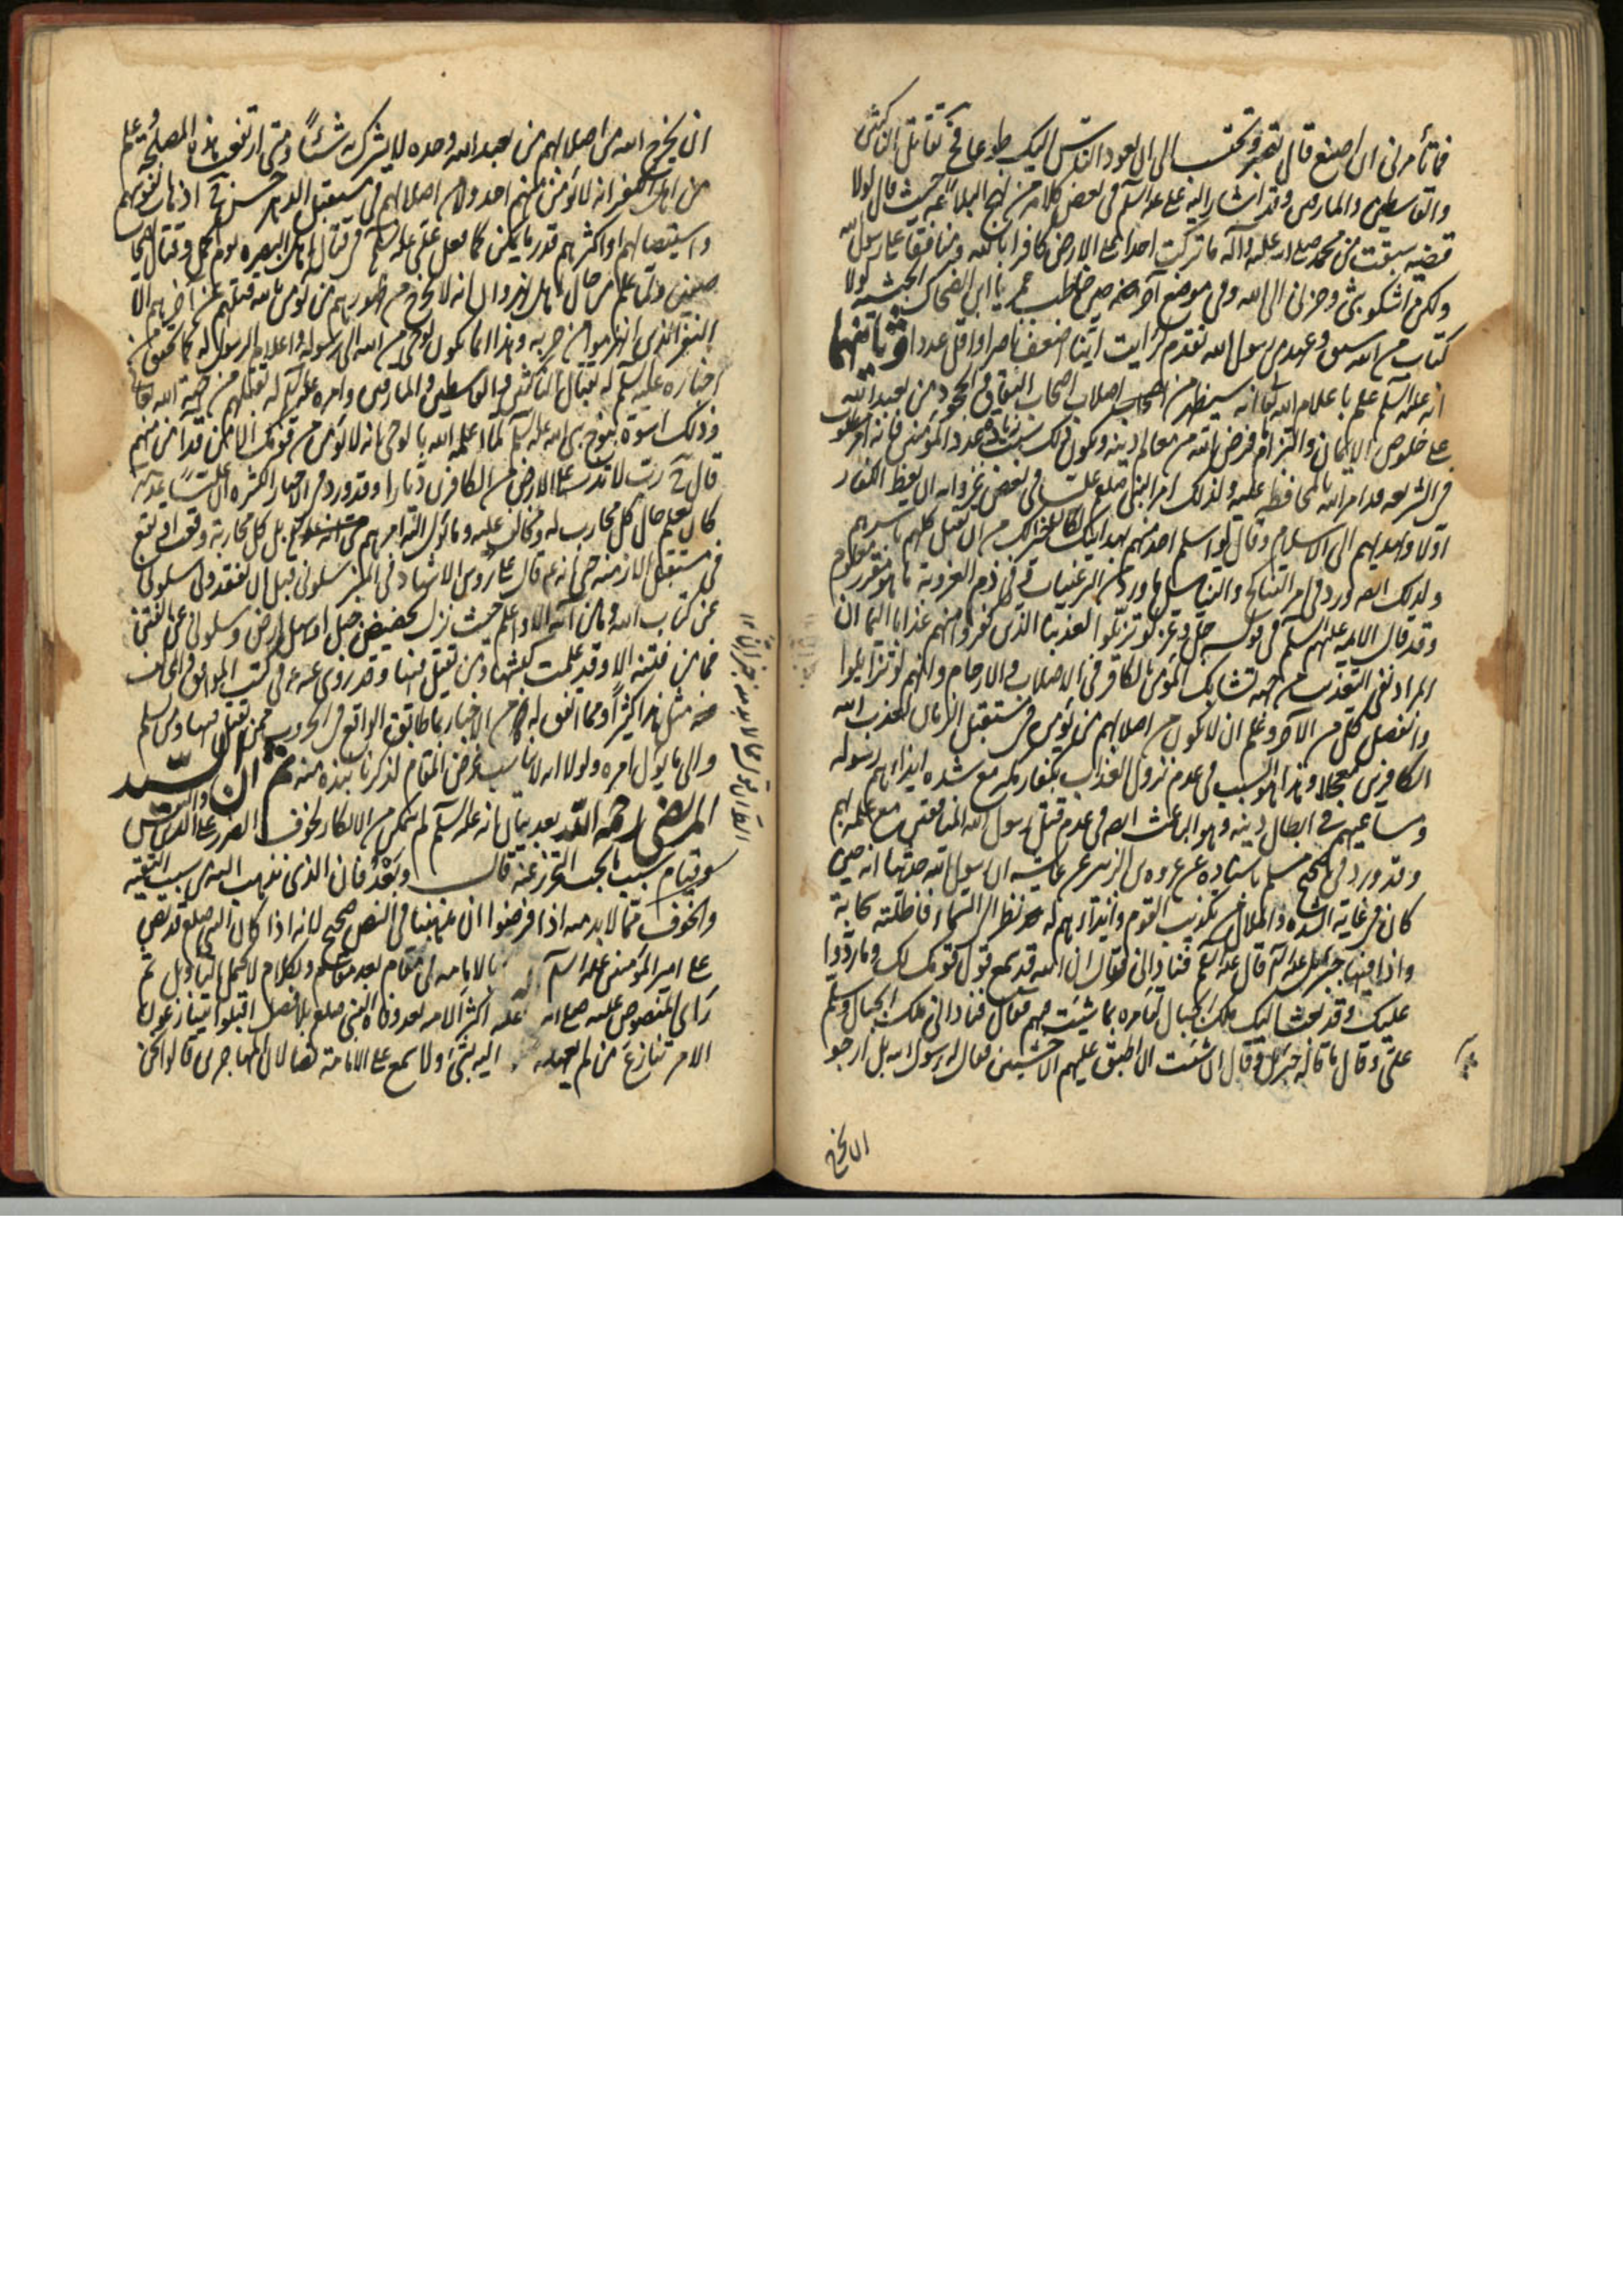 فما تأمرنى ان اصنع قال تصبر وتحتسب الى ان يعود الناس اليك طوعا فح تقاتل الناكثين
والقاسطين والمارقين وقد اشار اليه على عليه السلم فى بعض كلامه من نهج البلاغة حيث قال لولا
قضيه سبقت من محمد صلى الله عليه وآله ما تركت احدا على الارض كافرا بالله ومنافقا على رسول الله
ولكن اشكو بثى وحزنى الى الله وفى موضع آخر منه حين خاطب عمر يا ابن الضحاك الحبشيه لولا
كتاب من الله سبق وعهد من رسول الله تقدم لرايت اينا اضعف ناصرا واقل عددا وثانيها
انه عليه السلم علم باعلام الله تعا انه سيظهر من اصلاب اصحاب النفاق والجحود من يعبد الله
على خلوص الايمان والتزام فرض الله من معالم دينه ويكون ذلك سبب زيادة عدد المؤمنين فانه امر مطلوب
فى الشريعه قد امر الله بالمحافظة عليه ولذلك امر النبى صلعم عليا فى بعض غزواته ان يعظ الكفار
اولا ويهديهم الى الاسلام وقال لو اسلم احد منهم بهدايتك لكان خيرا لك من ان تقتل كلهم باسرهم
ولذلك ايضا ورد فى امر التناكح والتناسل ما ورد من الترغيبات وفى ذم العزوبة ما هو مقرر معلوم
وقد قال الائمه عليهم السلم فى قوله جل وعز لو تزيلوا لعذبنا الذين كفروا منهم عذابا اليما ان
المراد نفى التعذيب من جهة تشابك المؤمن بالكافر فى الاصلاب والارحام وانهم لو تزايلوا
وانفصل كل من الآخر وعلم ان لا يكون من اصلابهم من يؤمن فى مستقبل الزمان لعذب الله
الكافرين معجلا وهذا هو السبب فى عدم نزول العذاب بكفار مكه مع شده ايذائهم رسوله
ومساعيهم فى ابطال دينه وهو الباعث ايضا فى عدم قتل رسول الله المنافقين مع علمه بهم
وقد ورد فى صحيح مسلم باسناده عن عروه بن الزبير عن عايشه ان رسول الله حدثها انه حين
كان فى غاية الشده والملال من تكذيب القوم وايذائهم له نظر الى السماء فاظلته سحابة
واذا فيها جبرئيل عليه السلم قال عليه السلم فنادانى فقال ان الله قد سمع قول قومك لك وما ردوا
عليك وقد بعث اليك ملك الجبال لتامره بما شيت فيهم فقال فنادانى ملك الجبال وسلم
على وقال ما قاله جبرئيل وقال ان شئت ان اطبق عليهم الاخشبين فقال له رسول الله بل ارجو
ان يخرج
ان يخرج الله من اصلابهم من يعبد الله وحده لا يشرك به شيئا ومتى ارتفعت هذه المصلحه وعلم
من اهل الكفر انه لا يؤمن منهم احد ولا من اصلابهم فى مستقبل الدهر حسن ح اذهاب نفوسهم
واستيصالهم او اكثرهم قدر ما يمكن كما فعل على عليه السلم فى قتال اهل البصره يوم الجمل وقتال اصحاب
صفين وقد علم من حال اهل نهروان انه لا يخرج من ظهورهم من يؤمن بالله فقتلهم عن آخرهم الا
النفر الذين انهزموا من حربه وهذا انما يكون لوحى من الله الى رسوله واعلام الرسول له كما تحقق من
اخباره عليه السلم له بقتال الناكثين والقاسطين والمارقين وامره عليه السلم له بقتلهم من جهة الله تعا
وذلك اسوة بنوح نبى الله عليه السلم لما اعلمه الله بالوحى بانه لا يؤمن من قومك الا من قد آمن منهم
قال ح رب لا تذر على الارض من الكافرين ديارا وقد ورد فى الاخبار الكثيره ان عليا عليه السلم
كان يعلم حال كل محارب له ومخالف عليه وما يؤل اليه امرهم بل كل محاربة وقعت او تقع
فى مستقبل الازمنه حتى انه قال على رؤس الاشهاد فى المنبر سلونى قبل ان تفقدونى سلونى
عن كتاب الله وما من آيه الا واعلم حيث نزلت بحضيض جبل او سهل ارض وسلونى عن الفتن
فما من فتنه الا وقد علمت كبشها ومن يقتل فيها وقد روى عنه فى كتب الموافق والمخالف
مثل هذا كثيرا ومما اتفق له من الاخبار بما طابق الواقع فى الحروب ممن يقتل فيها ومن يسلم
والى ما يؤل امره ولولا انه لا يناسب غرض المقام لذكرنا نبذه منه ثم ان السيد
المرتضى رحمه الله بعد بيان انه عليه السلم لم يتمكن من الانكار لخوف الضرر على الدين والنفس
وقيام سبب ما يجب التحرز عنه قال وبعد فان الذى نذهب اليه من سبب التقيه
والخوف مما لا بد منه اذا فرضوا ان مذهبنا فى النص صحيح لانه اذا كان النبى صلعم قد نص
على امير المؤمنين عليه السلم بالامامه فى مقام بعد مقام وبكلام لا يحتمل التاويل ثم
رأى المنصوص عليه اكثر الامه بعد وفاه النبى صلعم بلا فصل اقبلوا يتنازعون
الامر تنازع من لم يعهد اليه بشئ ولا سمع على الامامة نصا لان المهاجرين قالوا نحن